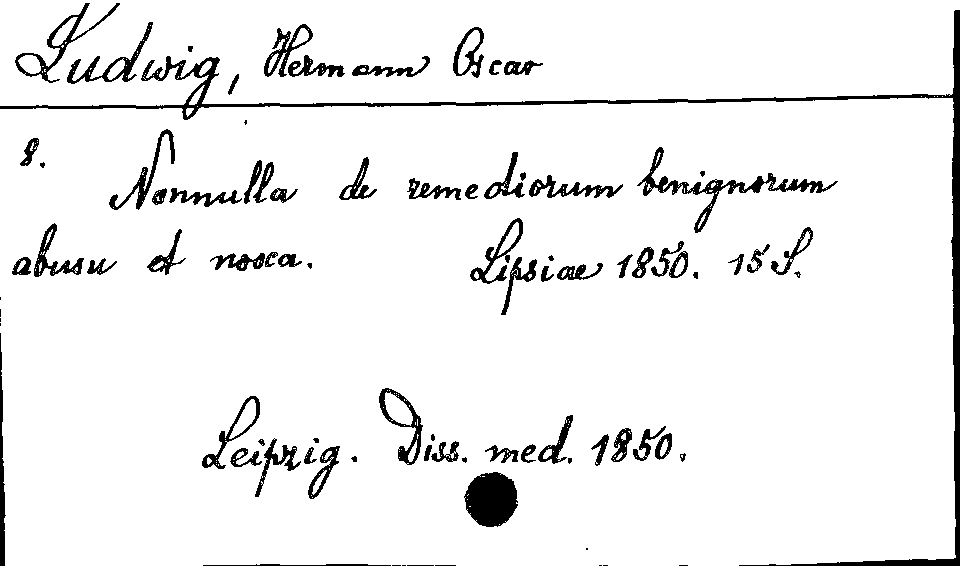 Ludwig, Hermann Oscar
8.
Nonnulla de remediorum benignorum
abusu et noxa. Lipsiae 1850. 15 S.
Leipzig. Diss. med. 1850.